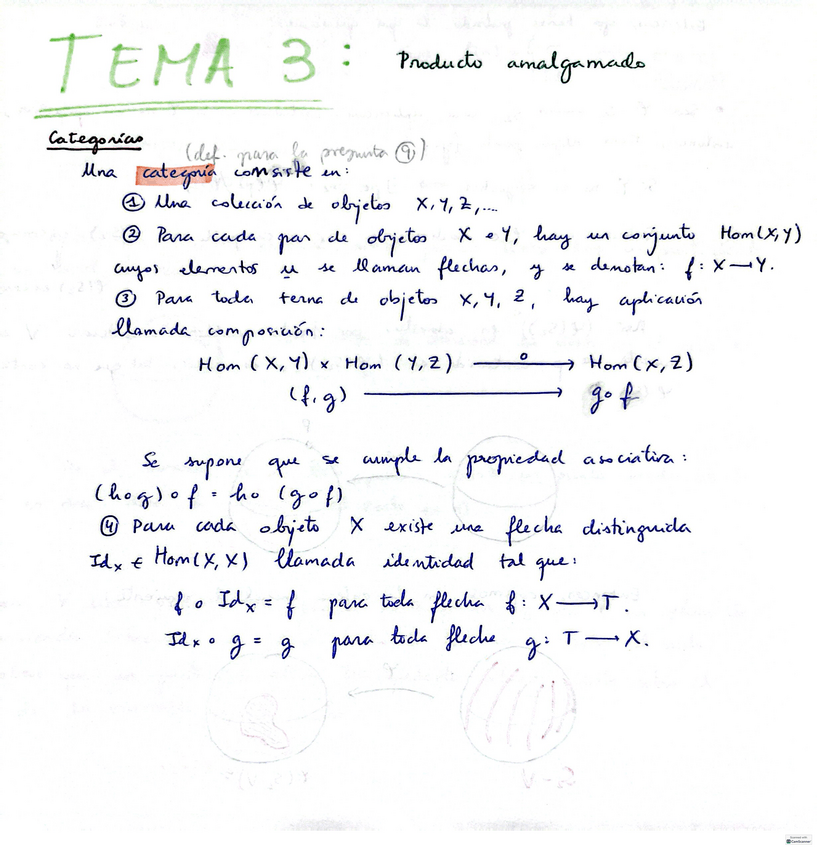 TEMA 3: Producto amalgamado
Categorías
(def. para la pregunta ⑨)
Una categoría consiste en:
① Una colección de objetos X, Y, Z,....
② Para cada par de objetos X e Y, hay un conjunto Hom(X,Y)
cuyos elementos se llaman flechas, y se denotan: f: X → Y.
③ Para toda terna de objetos X, Y, Z, hay aplicación
llamada composición:
Hom(X,Y) × Hom(Y,Z) —o→ Hom(X,Z)
(f,g) → g∘f
Se supone que se cumple la propiedad asociativa:
(h∘g)∘f = h∘(g∘f)
④ Para cada objeto X existe una flecha distinguida
Idₓ ∈ Hom(X,X) llamada identidad tal que:
f∘Idₓ = f para toda flecha f: X → T.
Idₓ∘g = g para toda flecha g: T → X.
CamScanner